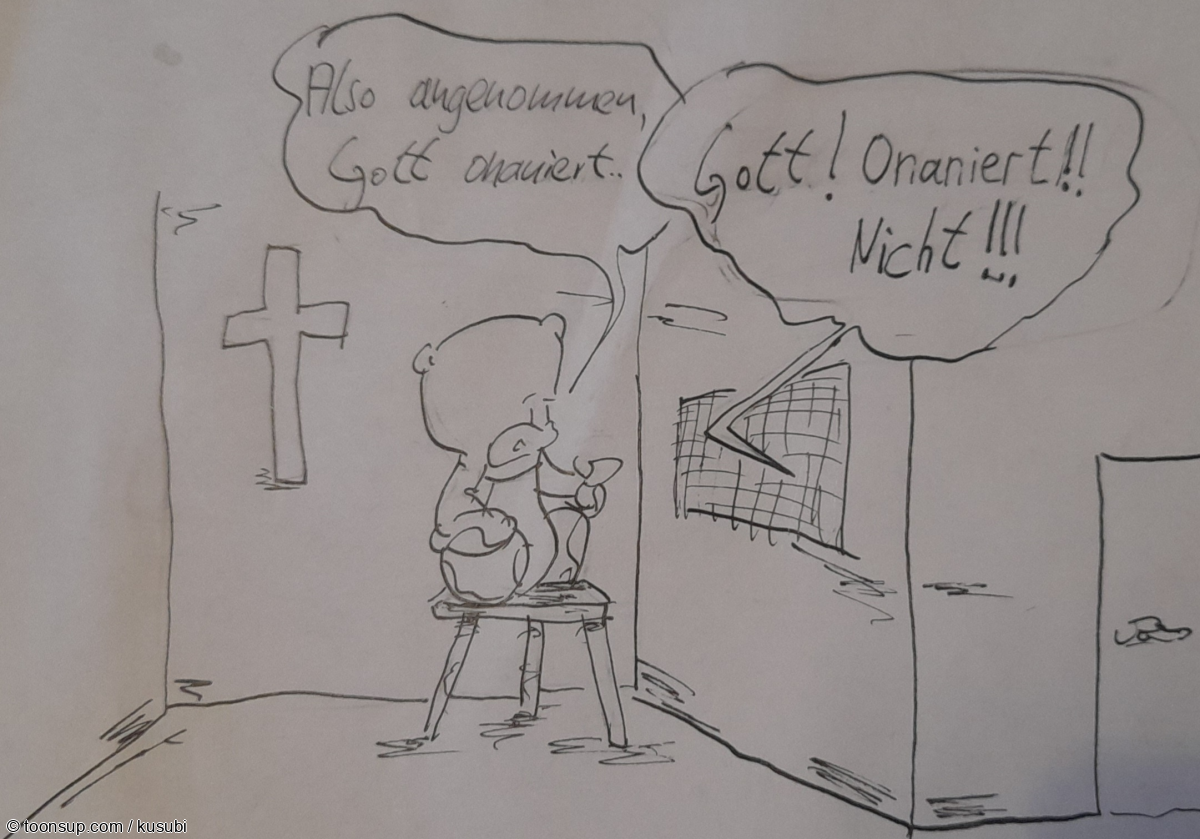 Also angenommen,
Gott onaniert..
Gott! Onaniert!!
Nicht!!!
© toonsup.com / kusubi